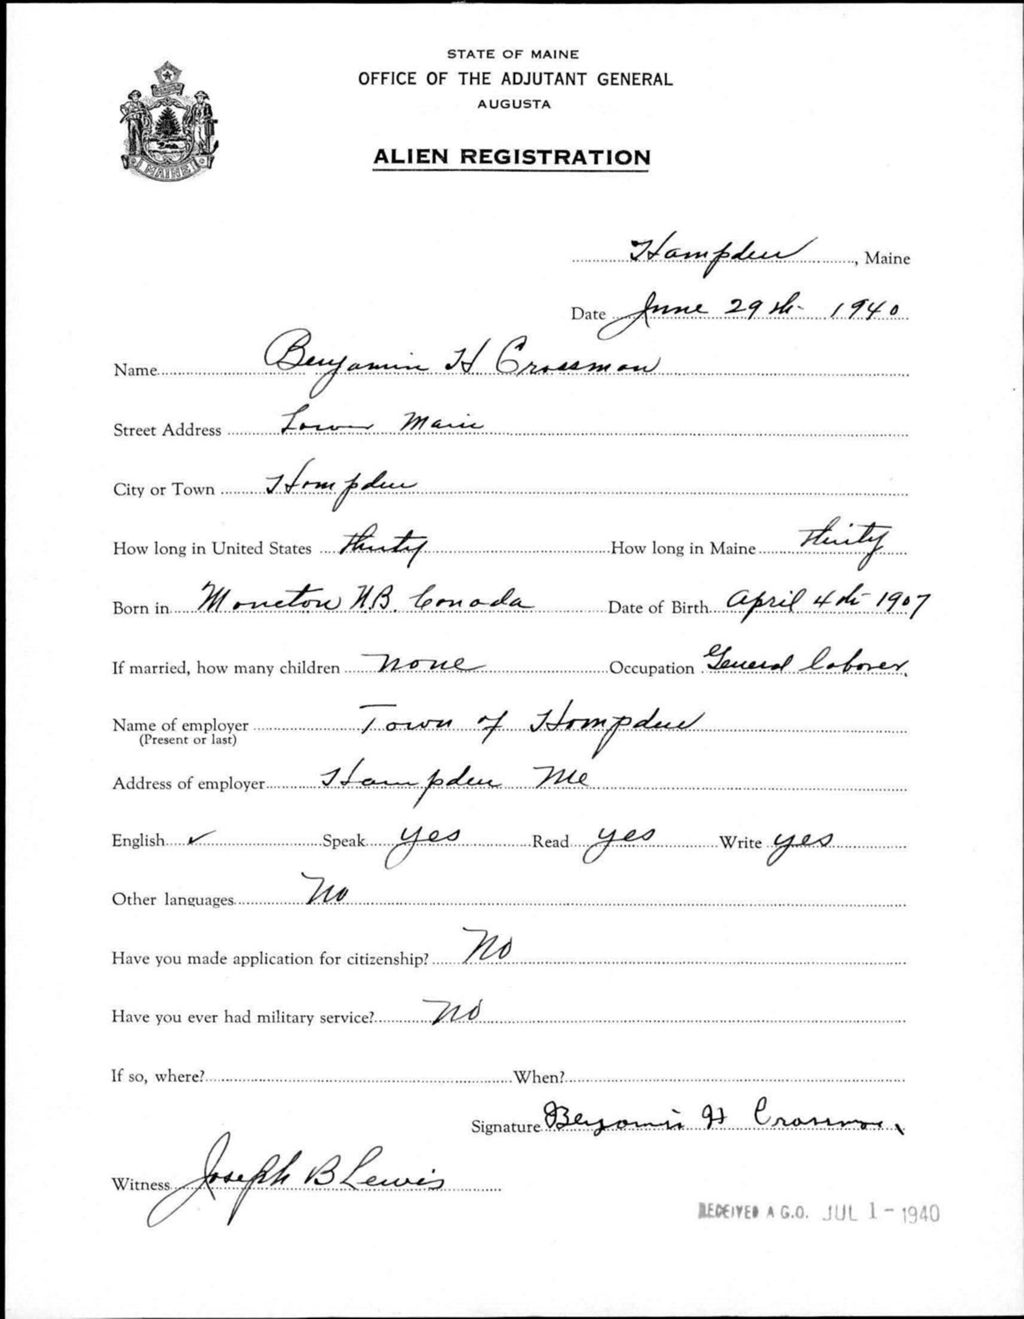 STATE OF MAINE
OFFICE OF THE ADJUTANT GENERAL
AUGUSTA
ALIEN REGISTRATION
MAINE
Hampden, Maine
Date June 29th 1940
Name Benjamin H Crossman
Street Address Lower Main
City or Town Hampden
How long in United States thirty How long in Maine thirty
Born in Moncton N.B. Canada Date of Birth April 4th 1907
If married, how many children none Occupation General laborer
Name of employer Town of Hampden
(Present or last)
Address of employer Hampden Me
English ✓ Speak yes Read yes Write yes
Other languages No
Have you made application for citizenship? No
Have you ever had military service? No
If so, where? When?
Signature Benjamin H Crossman
Witness Joseph B Lewis
RECEIVED A.G.O. JUL 1 - 1940